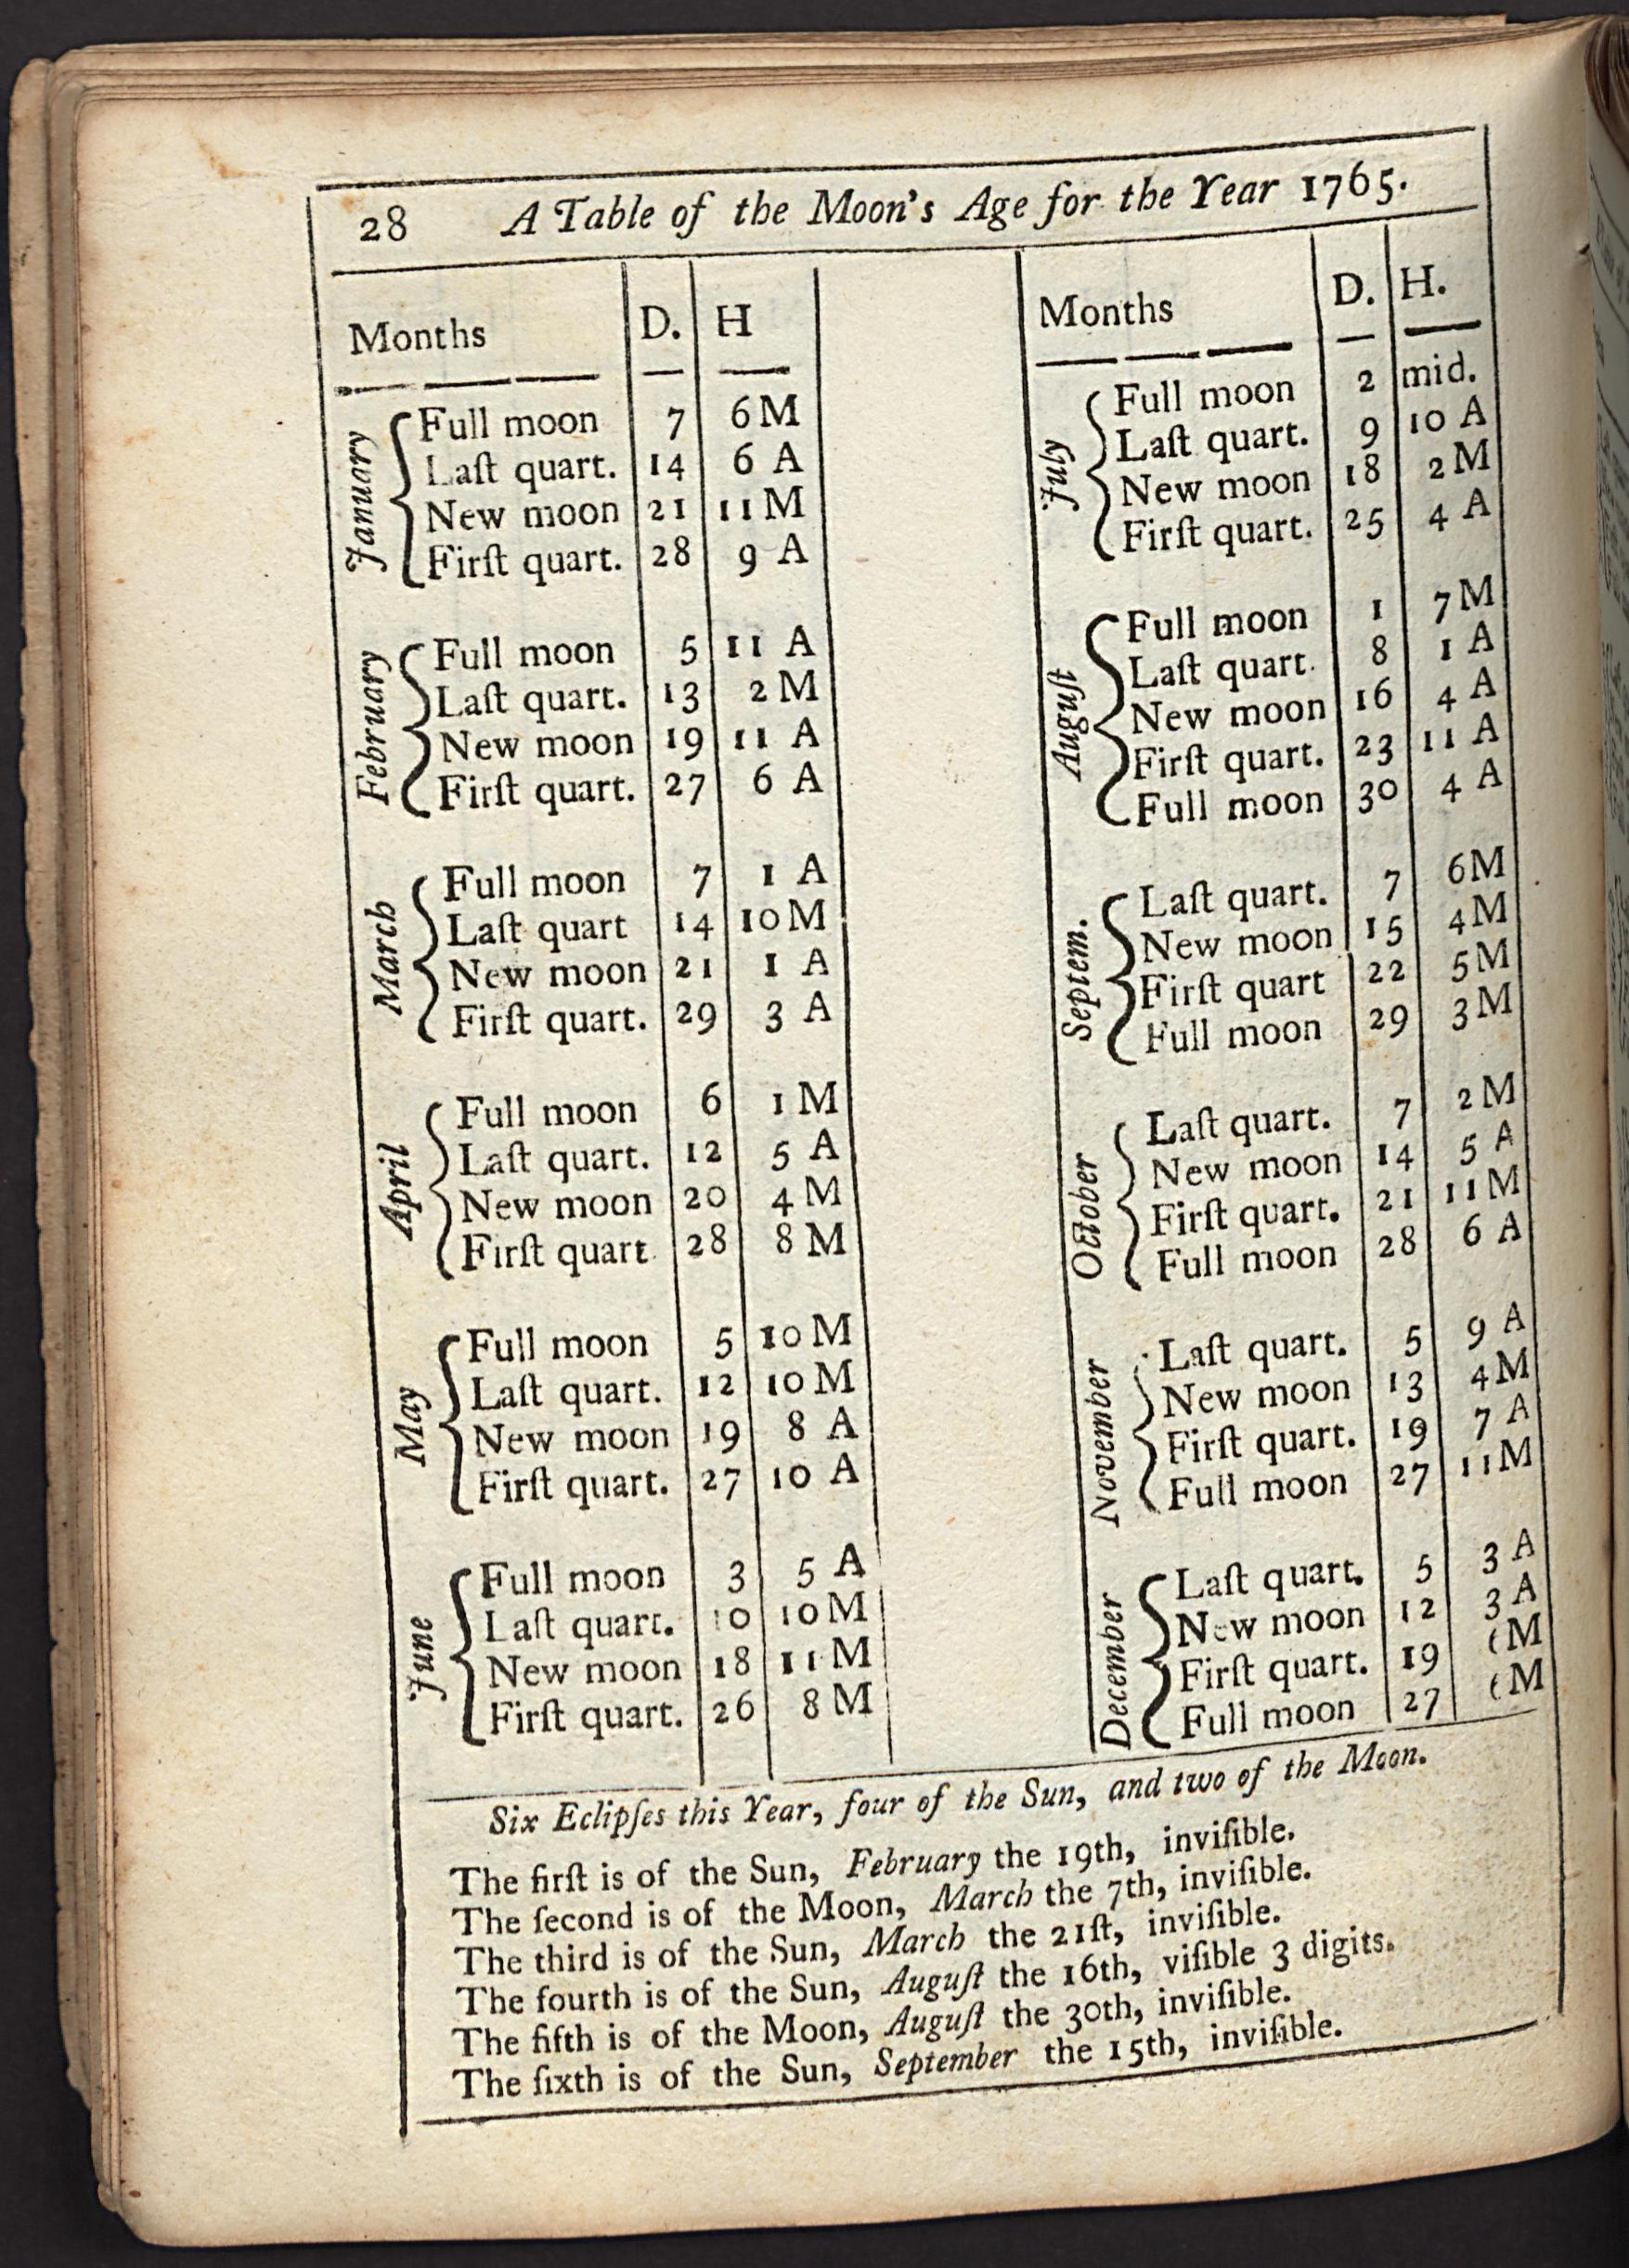 28 A Table of the Moon's Age for the Year 1765.
Months D. H
January
Full moon 7 6 M
Laſt quart. 14 6 A
New moon 21 11 M
Firſt quart. 28 9 A
February
Full moon 5 11 A
Laſt quart. 13 2 M
New moon 19 11 A
Firſt quart. 27 6 A
March
Full moon 7 1 A
Laſt quart 14 10 M
New moon 21 1 A
Firſt quart. 29 3 A
April
Full moon 6 1 M
Laſt quart. 12 5 A
New moon 20 4 M
Firſt quart. 28 8 M
May
Full moon 5 10 M
Laſt quart. 12 10 M
New moon 19 8 A
Firſt quart. 27 10 A
June
Full moon 3 5 A
Laſt quart. 10 10 M
New moon 18 11 M
Firſt quart. 26 8 M
Months D. H.
July
Full moon 2 mid.
Laſt quart. 9 10 A
New moon 18 2 M
Firſt quart. 25 4 A
Auguſt
Full moon 1 7 M
Laſt quart. 8 1 A
New moon 16 4 A
Firſt quart. 23 11 A
Full moon 30 4 A
Septem.
Laſt quart. 7 6 M
New moon 15 4 M
Firſt quart 22 5 M
Full moon 29 3 M
October
Laſt quart. 7 2 M
New moon 14 5 A
Firſt quart. 21 11 M
Full moon 28 6 A
November
Laſt quart. 5 9 A
New moon 13 4 M
Firſt quart. 19 7 A
Full moon 27 11 M
December
Laſt quart. 5 3 A
New moon 12 3 A
Firſt quart. 19 M
Full moon 27 M
Six Eclipſes this Year, four of the Sun, and two of the Moon.
The firſt is of the Sun, February the 19th, inviſible.
The ſecond is of the Moon, March the 7th, inviſible.
The third is of the Sun, March the 21ſt, inviſible.
The fourth is of the Sun, Auguſt the 16th, viſible 3 digits.
The fifth is of the Moon, Auguſt the 30th, inviſible.
The ſixth is of the Sun, September the 15th, inviſible.